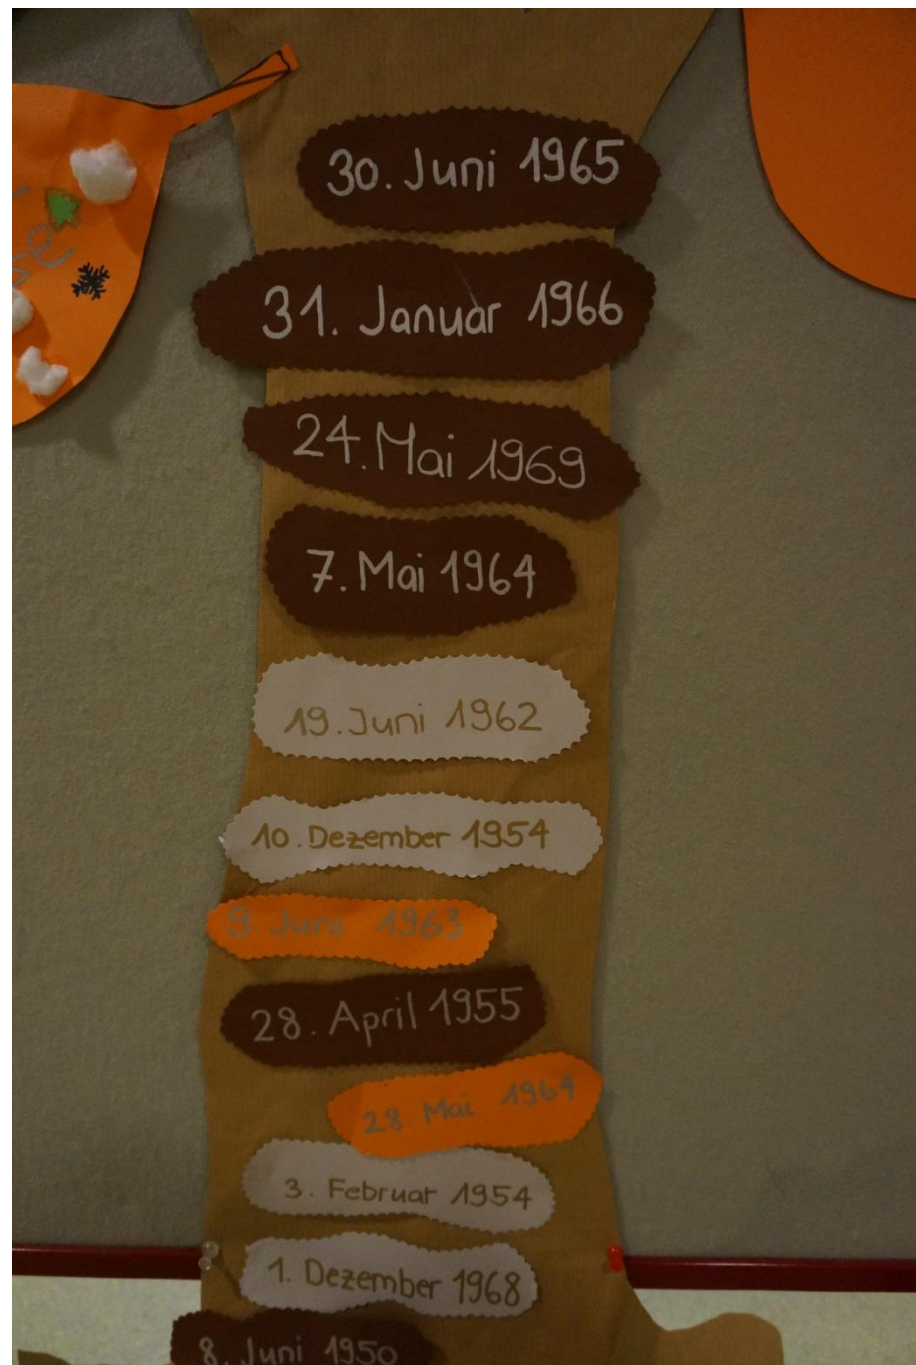 30. Juni 1965
31. Januar 1966
24. Mai 1969
7. Mai 1964
19. Juni 1962
10. Dezember 1954
9. Juni 1963
28. April 1955
28. Mai 1964
3. Februar 1954
1. Dezember 1968
8. Juni 1950